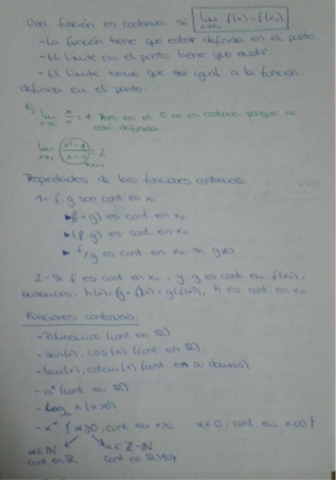 Una función es continua si lim x→x₀ f(x) = f(x₀)
- La función tiene que estar definida en el punto.
- El límite en el punto tiene que existir.
- El límite tiene que ser igual a la función
definida en el punto.
lim x/x = 1 Pero en el 0 no es continua porque no
está definida
lim x→1 (x²-1 / x-1) = 2
Propiedades de las funciones continuas
1- f, g son cont en x₀
(f+g) es cont en x₀
(f·g) es cont en x₀
f/g es cont en x₀ si g≠0
2- Si f es cont en x₀, y g es cont en f(x₀),
entonces, h(x)=(g∘f)(x)=g(f(x)), h es cont en x₀
Funciones continuas:
- Polinomios (cont en ℝ)
- sen(x), cos(x) (cont en ℝ)
- tan(x), cotan(x) (cont en su dominio)
- aˣ (cont en ℝ)
- Log x (x>0)
- x^α { α>0, cont en x≥0 α<0, cont en x<0 }
α∈ℕ α∈ℤ-ℕ
cont en ℝ cont en ℝ\{0}